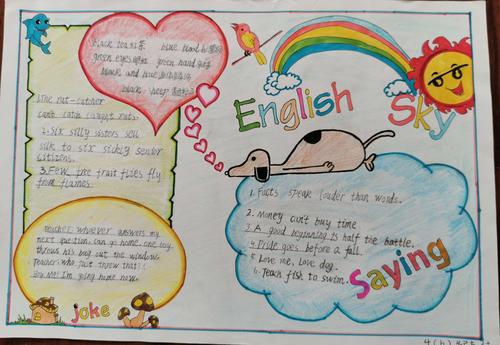 English Sky
black tea 红茶 blue blood
green eyes green hand
black and blue
black sheep
1.The rat-catcher
can't catch caught rats.
2.Six silly sisters sell
silk to six sickly senior
citizens.
3.Few free fruit flies fly
from flames.
Teacher: whoever answers my
next question, can go home. one boy
throws his bag out the window.
Teacher: who just threw that?
Boy: Me! I'm going home now.
joke
1. Facts speak louder than words.
2. Money can't buy time
3. A good beginning is half the battle.
4. Pride goes before a fall.
5. Love me, love dog.
6. Teach fish to swim.
Saying